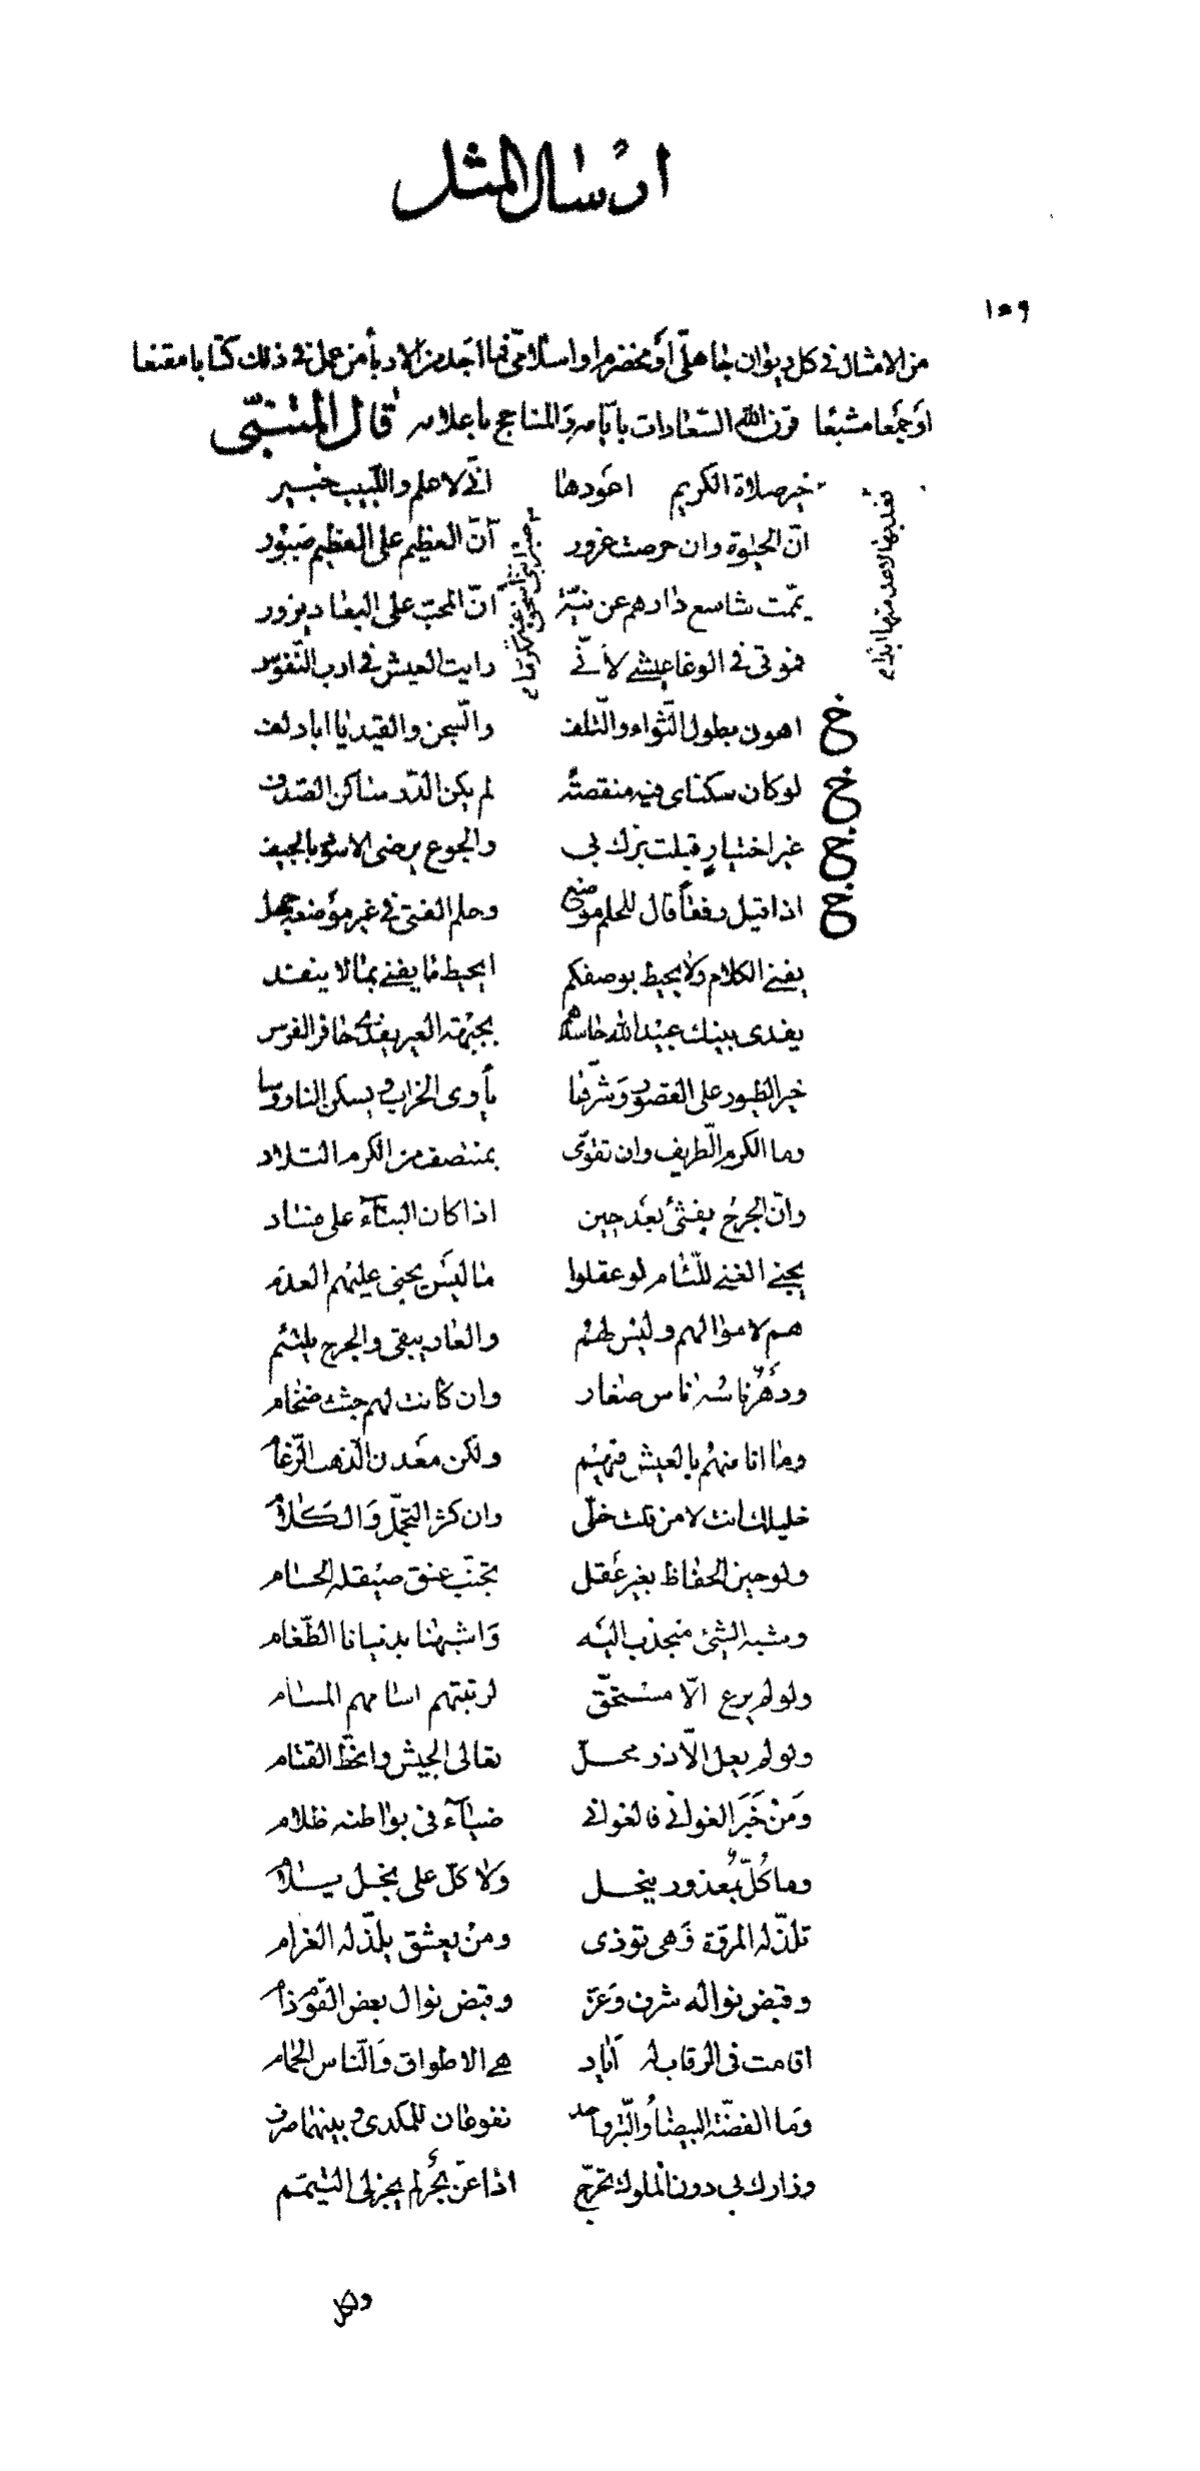 ارسال المثل
١٠٩
من الامثال فى كل ديوان جاهلّى أو مخضرم او اسلامّى فما اجد من الادبأ من عمل فى ذلك كتابا مقنعا
او جمعا مشبعا قرن الله السّعادات بايّامه والمناجح باعلامه قال المتنبّى
خير صلاة الكريم اعودها
انّى لاعلم واللّبيب خبير
انّ الحيوة وان حرصت غرور
انّ العظيم على العظيم صبور
يمّمت شاسع دارهم عن نيّة
انّ المحبّ على البعاد يزور
فموتى فى الوغا عيشى لانّى
رايت العيش فى ارب النّفوس
خ اهون بطول الثّواء والتّلف
والسّجن والقيد يا ابا دلف
خ لو كان سكناى فيه منقصة
لم يكن الدّر ساكن الصّدف
خ غير اختيار قبلت برّك بى
والجوع يرضى الاسود بالجيف
خ اذا قيل رفقاً قال للحلم موضع
وحلم الفتى فى غير مؤضعه جهل
يفنى الكلام ولا يحيط بوصفكم
ايحيط ما يفنى بما لا ينفد
يفدى بنيك عبيد الله حاسدهم
بجبهة العير يفدى حافر الفرس
خير الطّيور على القصور وشرّها
يأوى الخراب ويسكن الناووسا
وما الكرم الّطريف وان تقوّى
بمنتصف من الكرم التلاد
وانّ الجرح ينفث بعد حين
اذا كان البنآء على فساد
يجنى الغنى للّئام لو عقلوا
ما ليس يجنى عليهم العدم
هم لاموالهم وليس لهم
والعار يبقى والجرح يلتئم
ودهر ناسه ناس صغار
وان كانت لهم جثث ضخام
وما انا منهم بالعيش فيهم
ولكن معدن الذّهب الرّغام
خليلك انت لا من قلت خلّى
وان كثر التّجمّل والكلام
ولو حيز الحفاظ بغير عقل
تجنّب عنق صيقله الحسام
وشبه الشئ منجذب اليه
واشبهنا بدنيانا الطّغام
ولو لم يرع الّا مستحقّ
لرتبتهم اسامهم المسام
ولو لم يعل الّا ذو محلّ
تعالى الجيش وانحطّ القتام
ومن خبر الغوانى فالغوانى
ضيآء فى بواطنه ظلام
وما كلّ بمعذور ببخل
ولا كلّ على بخل يلام
تلذّ له المروّة وهى توذى
ومن يعشق يلذّ له الغرام
وقبض نواله شرف وعزّ
وقبض نوال بعض القوم ذام
اقامت فى الرقاب له اياد
هى الاطواق والنّاس الحمام
وما الفضّة البيضا والتّبر واحد
نفوعان للمكدى وبينهما صرف
وزارك بى دون الملوك تحرّج
اذا عنّ بحر لم يجز لى التّيمّم